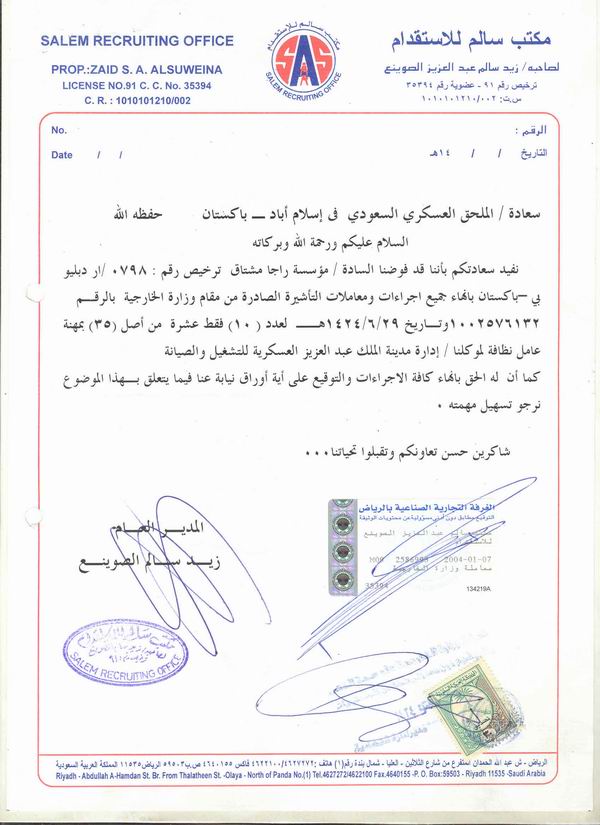 SALEM RECRUITING OFFICE
PROP.:ZAID S. A. ALSUWEINA
LICENSE NO.91 C. C. No. 35394
C. R. : 1010101210/002
مكتب سالم للاستقدام
SAS
SALEM RECRUITING OFFICE
مكتب سالم للاستقدام
لصاحبه/ زيد سالم عبد العزيز الصوينع
ترخيص رقم ٩١ - عضوية رقم ٣٥٣٩٤
س.ت: ١٠١٠١٠١٢١٠/٠٠٢
No.
الرقم :
Date / /
التاريخ / / ١٤هـ
سعادة / الملحق العسكري السعودي فى إسلام أباد ــ باكستان حفظه الله
السلام عليكم ورحمة الله وبركاته
نفيد سعادتكم بأننا قد فوضنا السادة / مؤسسة راجا مشتاق ترخيص رقم : ٠٧٩٨ /ار دبليو
بي –باكستان بانهاء جميع اجراءات ومعاملات التأشيرة الصادرة من مقام وزارة الخارجية بالرقم
١٠٠٢٥٧٦١٣٢ وتـاريخ ١٤٢٤/٦/٢٩هــ لعدد (١٠) فقط عشرة من أصل (٣٥) بمهنة
عامل نظافة لموكلنا / إدارة مدينة الملك عبد العزيز العسكرية للتشغيل والصيانة
كما أن له الحق بانهاء كافة الاجراءات والتوقيع على أية أوراق نيابة عنا فيما يتعلق بـهذا الموضوع
نرجو تسهيل مهمته ٠
شاكرين حسن تعاونكم وتقبلوا تحياتنا٠٠٠
الغرفة التجارية الصناعية بالرياض
التوقيع مطابق دون أدنى مسؤولية عن محتويات الوثيقة
سالم عبدالعزيز الصوينع
M00 2586995 2004-01-07
معاملة وزارة الخارجية
35394
134219A
المدير العـام
زيـد سـالم الصوينـع
SALEM RECRUITING OFFICE
الرياض - ش عبد الله الحمدان المتفرع من شارع الثلاثين - العليا - شمال بندة رقم(١) هاتف ٤٦٢٢١٠٠/٤٦٢٧٢٧٢ فاكس ٤٦٤٠١٥٥ ص.ب ٥٩٥٠٣ الرياض ١١٥٣٥ المملكة العربية السعودية
Riyadh - Abdullah A-Hamdan St. Br. From Thalatheen St. -Olaya - North of Panda No.(1) Tel.4627272/4622100 Fax.4640155 -P. O. Box:59503 - Riyadh 11535 -Saudi Arabia